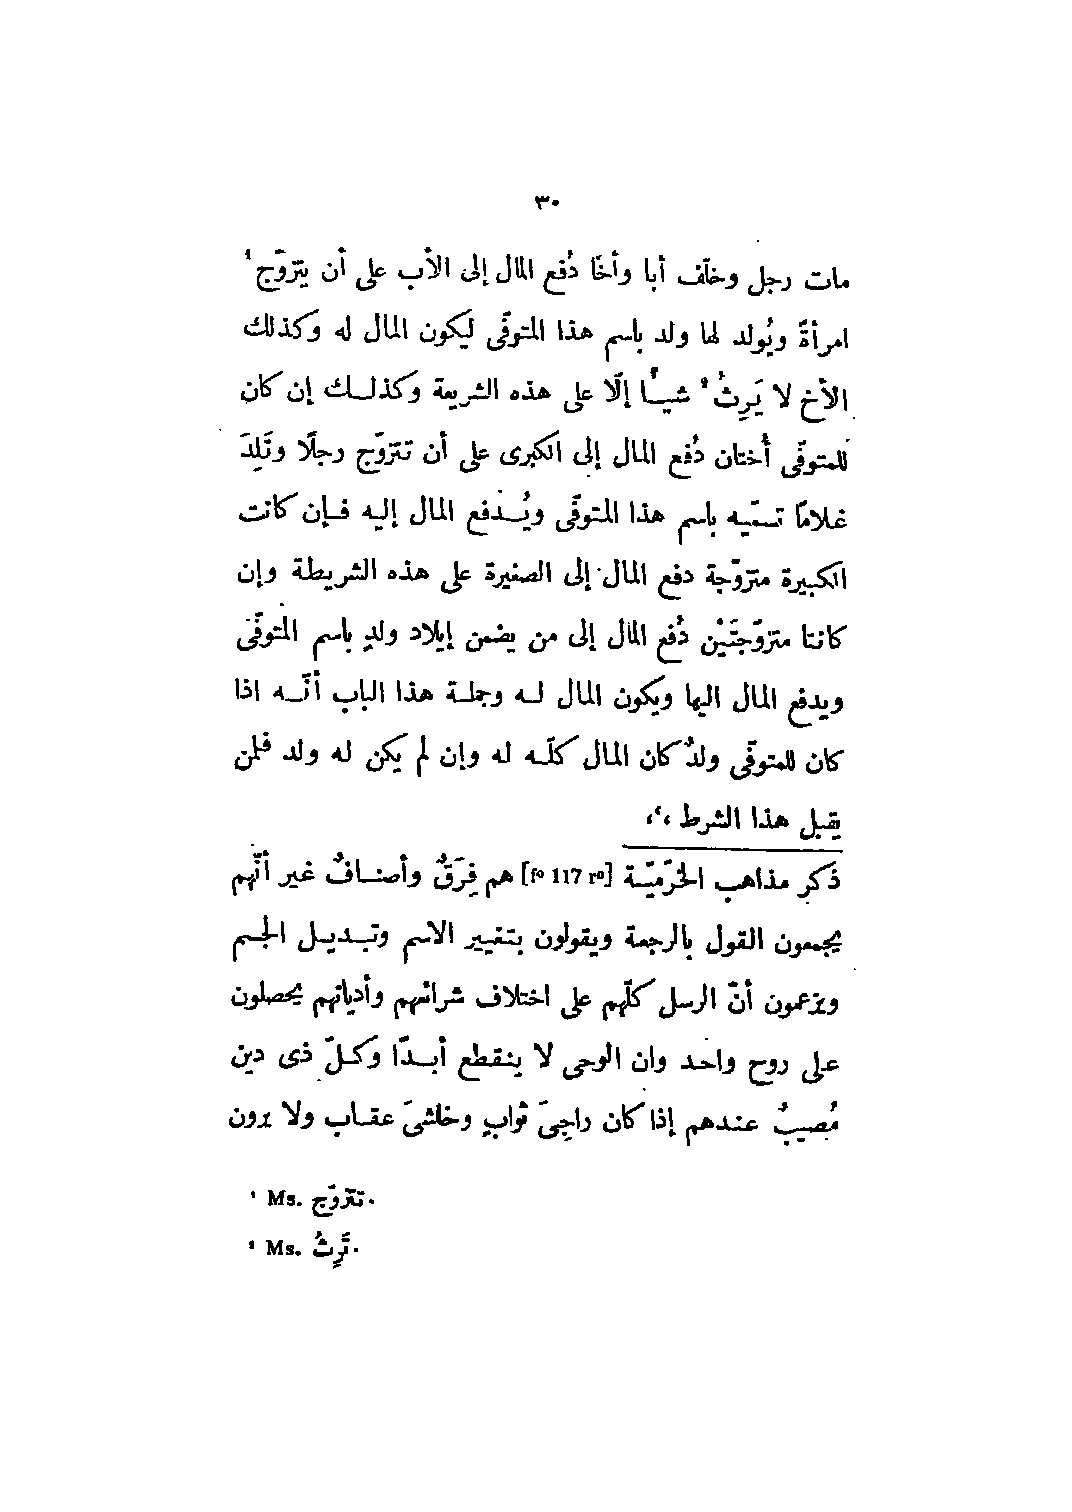 ٣٠
مات رجل وخلّف أبا وأخًا دُفع المال إلى الأب على أن يتزوّج¹
امرأةً ويُولد لها ولد باسم هذا المتوفّى ليكون المال له وكذلك
الأخ لا يَرِثُ² شيـأً إلّا على هذه الشريعة وكذلك إن كان
للمتوفّى أُختان دُفع المال إلى الكبرى على أن تتزوّج رجلًا وتَلِدَ
غلامًا تسمّيه باسم هذا المتوفّى ويُدفع المال إليه فإن كانت
الكبيرة متزوّجة دفع المال إلى الصغيرة على هذه الشريطة وإن
كانتا متزوّجتَيْن دُفع المال إلى من يضمن إيلاد ولدٍ باسم المتوفّى
ويدفع المال اليها ويكون المال له وجملة هذا الباب أنّه اذا
كان للمتوفّى ولدٌ كان المال كلّه له وإن لم يكن له ولد فلمن
يقبل هذا الشرط ،‛،
ذكر مذاهب الخرّميّة [fº 117 rº] هم فِرَقٌ وأصنافٌ غير أنّهم
يجمعون القول بالرجعة ويقولون بتغيير الاسم وتبديل الجسم
ويزعمون أنّ الرسل كلّهم على اختلاف شرائعهم وأديانهم يحصلون
على روح واحد وان الوحى لا ينقطع أبدًا وكلّ ذى دين
مُصيبٌ عندهم إذا كان راجِىَ ثوابٍ وخاشىَ عقاب ولا يرون
¹ Ms. تتزوّج.
² Ms. تَرِثُ.